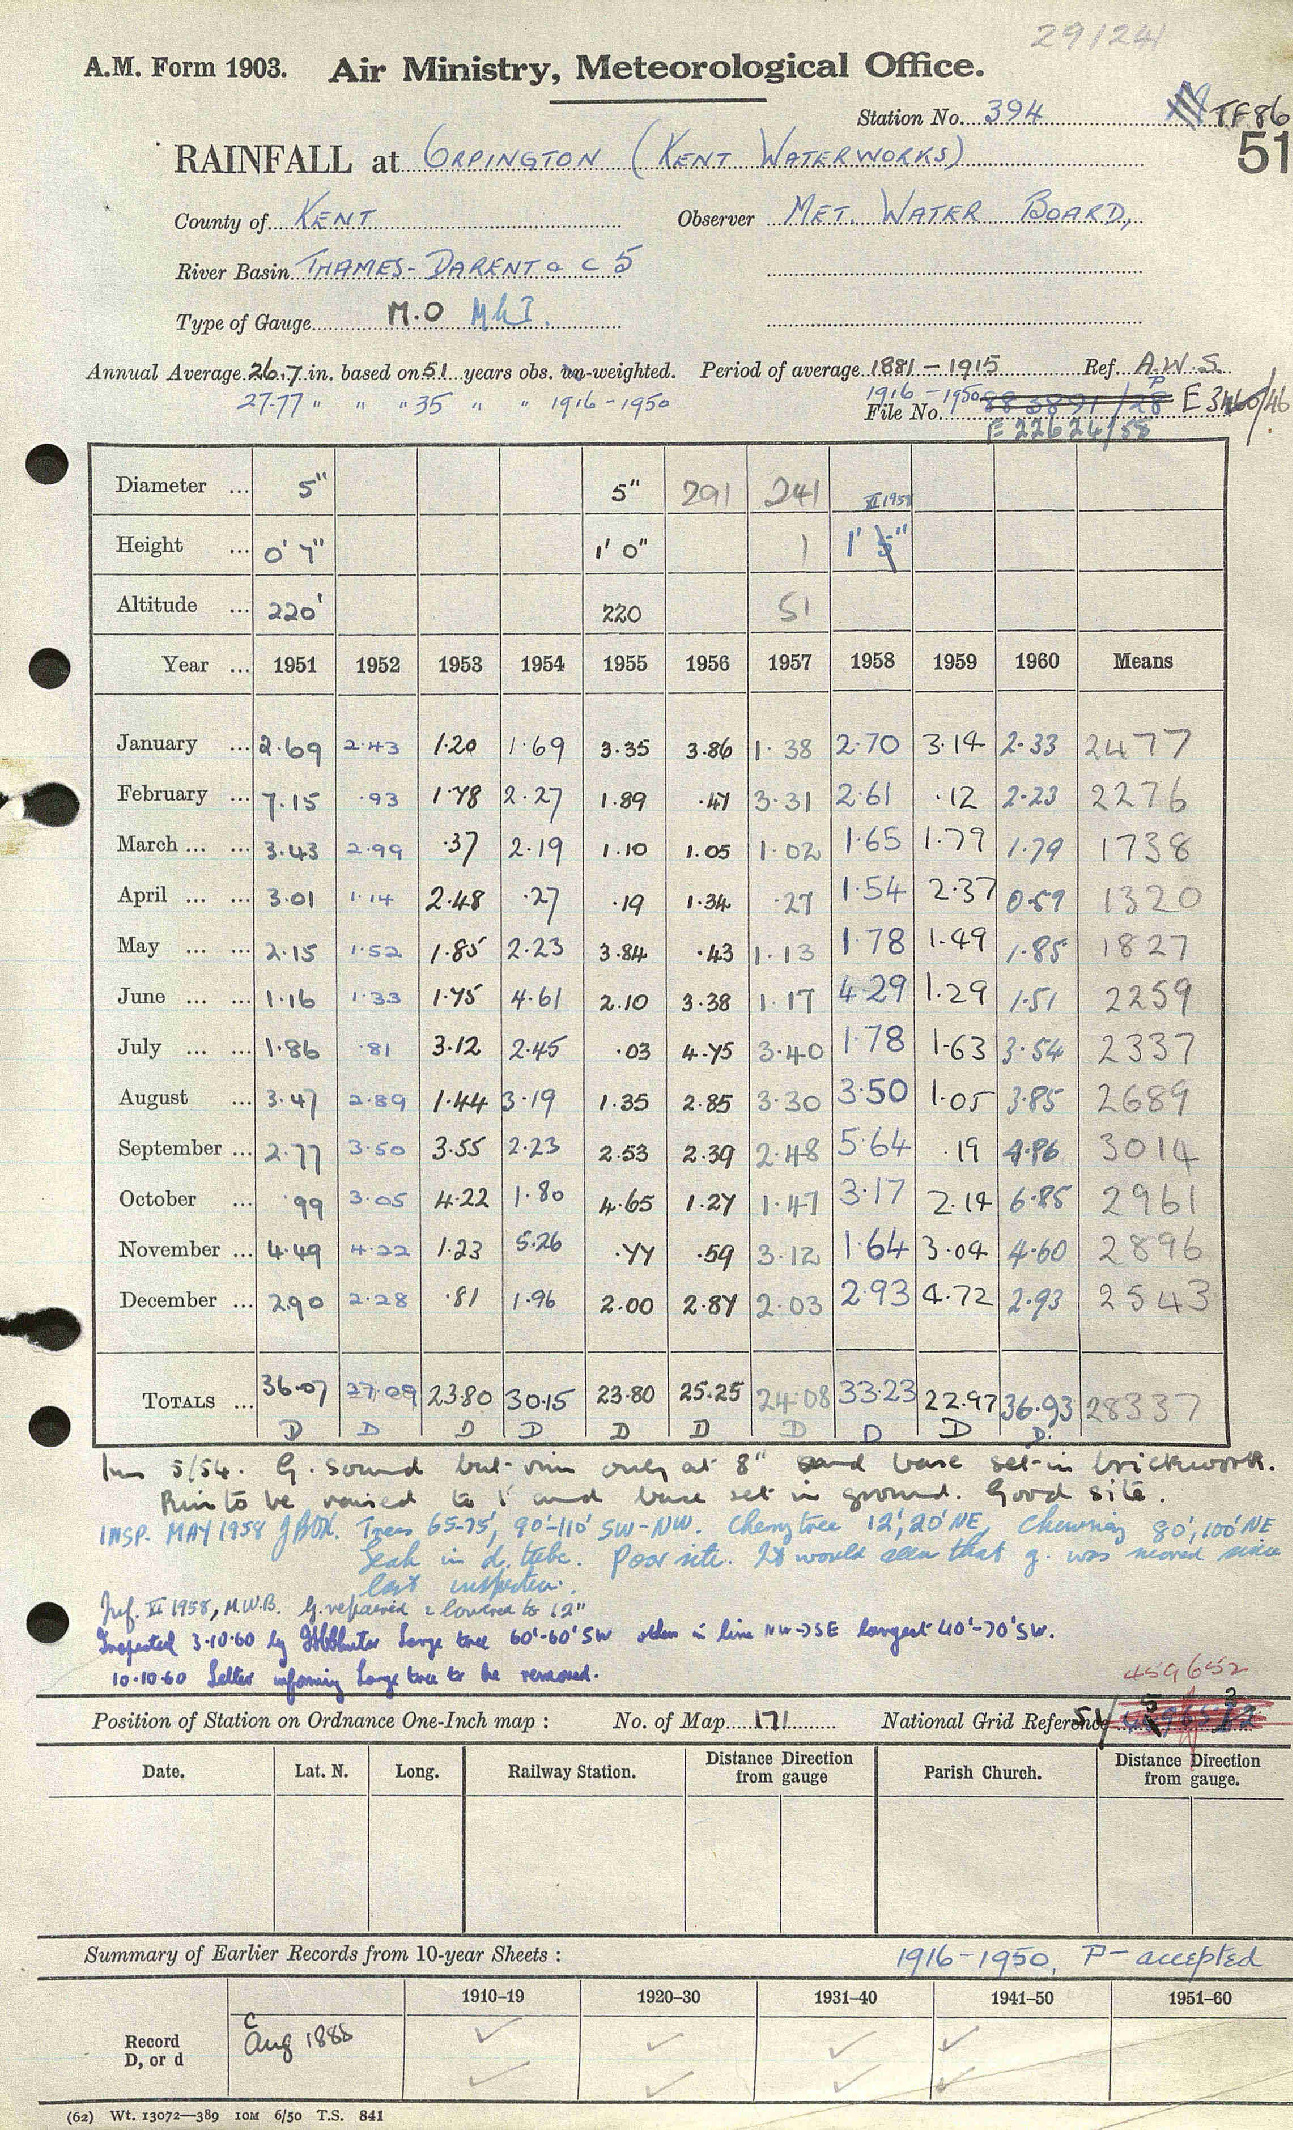 29/241
A.M. Form 1903. Air Ministry, Meteorological Office.
Station No. 394 TF86
51
RAINFALL at ORPINGTON (KENT WATERWORKS)
County of KENT Observer MET. WATER BOARD,
River Basin THAMES-DARENT & C 5
Type of Gauge M.O
Annual Average 26.7 in. based on 51 years obs. un-weighted. Period of average 1881 - 1915 Ref. A.W.S.
27.77 " " " 35 " " 1916 - 1950 1916 - 1950
File No. E 3460/46
E 22624/58
Diameter ... 5" 5" 291 241 XI 1958
Height ... 0' 7" 1' 0" 1 1' 5"
Altitude ... 220' 220 51
Year ... 1951 1952 1953 1954 1955 1956 1957 1958 1959 1960 Means
January ... 2.69 2.43 1.20 1.69 3.35 3.86 1.38 2.70 3.14 2.33 2477
February ... 7.15 .93 1.78 2.27 1.89 .47 3.31 2.61 .12 2.23 2276
March ... ... 3.43 2.99 .37 2.19 1.10 1.05 1.02 1.65 1.79 1.79 1738
April ... ... 3.01 1.14 2.48 .27 .19 1.34 .27 1.54 2.37 0.59 1320
May ... ... 2.15 1.52 1.85 2.23 3.84 .43 1.13 1.78 1.49 1.85 1827
June ... ... 1.16 1.33 1.75 4.61 2.10 3.38 1.17 4.29 1.29 1.51 2259
July ... ... 1.86 .81 3.12 2.45 .03 4.75 3.40 1.78 1.63 3.54 2337
August ... 3.47 2.89 1.44 3.19 1.35 2.85 3.30 3.50 1.05 3.85 2689
September ... 2.77 3.50 3.55 2.23 2.53 2.39 2.48 5.64 .19 4.86 3014
October ... .99 3.05 4.22 1.80 4.65 1.27 1.47 3.17 2.14 6.85 2961
November ... 4.49 4.22 1.23 5.26 .77 .59 3.12 1.64 3.04 4.60 2896
December ... 2.90 2.28 .81 1.96 2.00 2.87 2.03 2.93 4.72 2.93 2543
TOTALS ... 36.07 27.09 23.80 30.15 23.80 25.25 24.08 33.23 22.97 36.93 28337
D D D D D D D D D D
Ins 5/54. G. sound but rim only at 8" and base set in brickwork.
Rim to be raised to 1' and base set in ground. Good site.
INSP. MAY 1958 J BOX. Trees 65-75', 90'-110' SW-NW. Cherry tree 12', 20' NE, Chimney 80', 100' NE
Leak in d. tube. Poor site. It would seem that g. was moved since
last inspection.
Inf. XI 1958, M.W.B. G. repaired & lowered to 12"
Inspected 3.10.60 by Large tree 60'-60' SW others in line NW->SE largest 40'-70' SW.
10.10.60 Letter informing large tree to be removed.
459652
Position of Station on Ordnance One-Inch map : No. of Map 171 National Grid Reference 51/
Date. Lat. N. Long. Railway Station. Distance Direction from gauge Parish Church. Distance Direction from gauge.
Summary of Earlier Records from 10-year Sheets : 1916-1950, P- accepted
1910-19 1920-30 1931-40 1941-50 1951-60
Record
D, or d
C
Aug 1888
✓ ✓ ✓ ✓
✓ ✓ ✓ ✓
(62) Wt. 13072—389 10M 6/50 T.S. 841